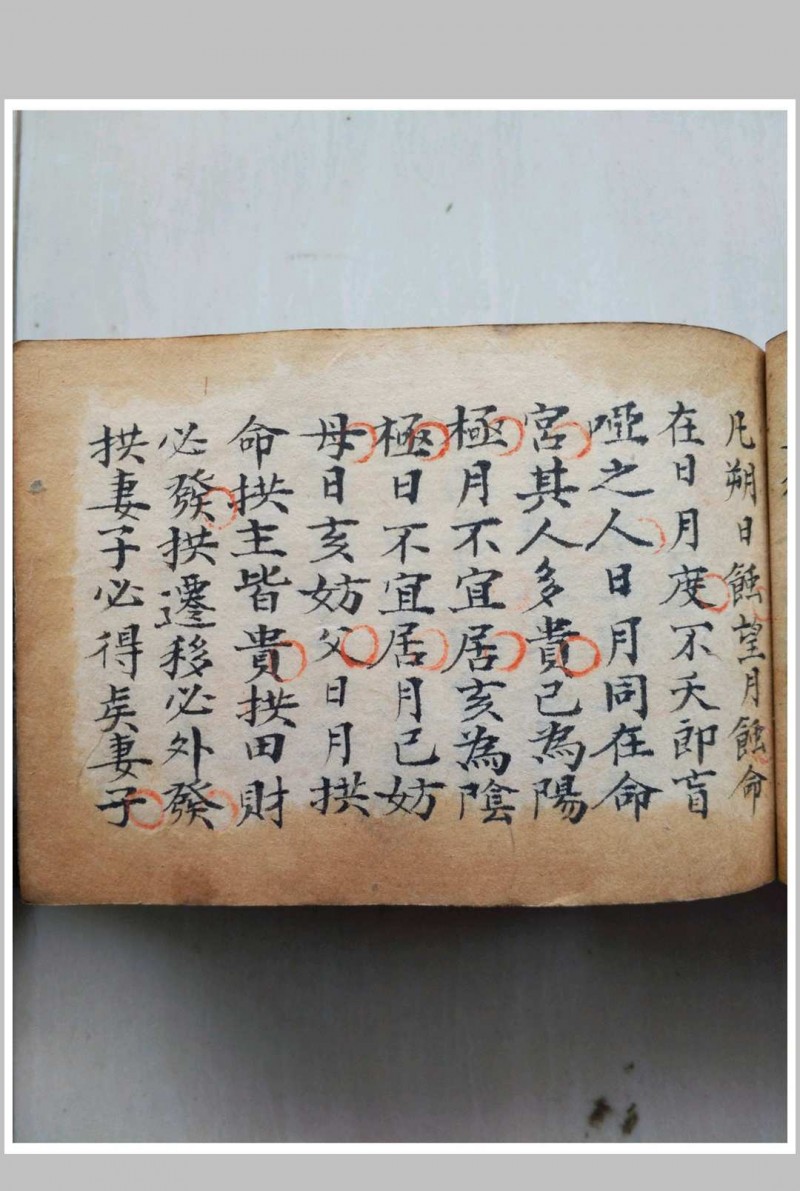 凡朔日蝕望月蝕命
在日月度不夭即盲
啞之人日月同在命
宮其人多貴已為陽
極月不宜居亥為陰
極日不宜居月已妨
母日亥妨父日月拱
命拱主皆貴拱田財
必發拱遷移必外發
拱妻子必得矣妻子